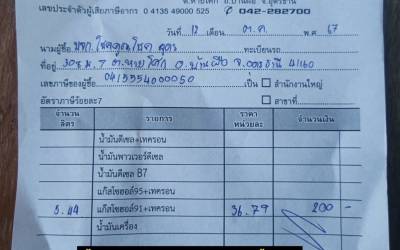 ต.หายโศก อ.บ้านผือ จ.อุดรธานี
เลขประจำตัวผู้เสียภาษีอากร 0 4135 49000 525 042-282700
วันที่ 12 เดือน ต.ค. พ.ศ. 67
นามผู้ซื้อ หจก.โชคคูณโชค อุดร ทะเบียนรถ
ที่อยู่ 30 ม.7 ต.หายโศก อ.บ้านผือ จ.อุดรธานี 41160
เลขภาษีของผู้ซื้อ 0413554000050 เป็น สำนักงานใหญ่
อัตราภาษีร้อยละ7 สาขาที่
จำนวน ลิตร รายการ ราคา หน่วยละ จำนวนเงิน
น้ำมันดีเซล+เทครอน
น้ำมันพาวเวอร์ดีเซล
น้ำมันดีเซล B7
แก๊สโซฮอล์95+เทครอน
5.44 แก๊สโซฮอล์91+เทครอน 36.79 200 -
น้ำมันเครื่อง